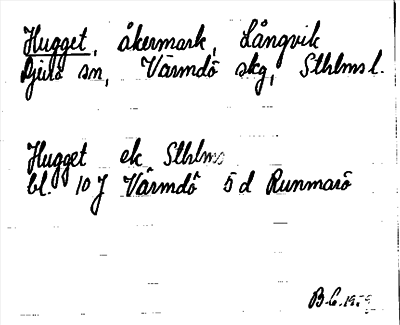 Hugget, åkermark, Långvik
Djurö sn, Värmdö skg, Sthlms l.
Hugget ek Sthlms
bl. 10 J Värmdö 5 d Runmarö
B.G. 1959